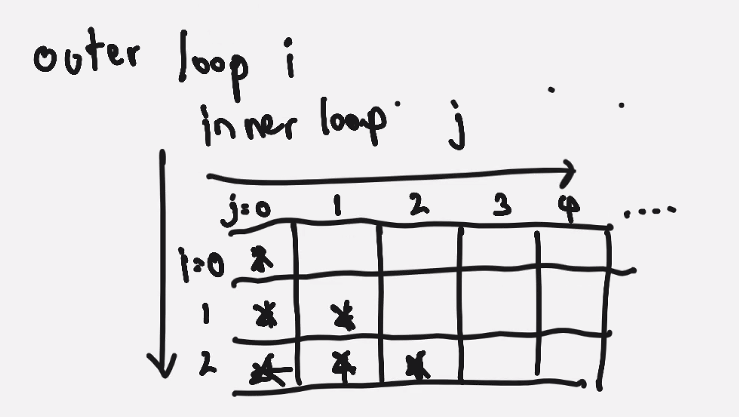 outer loop i
inner loop j
j=0 1 2 3 4 .....
i=0 *
1 * *
2 * * *